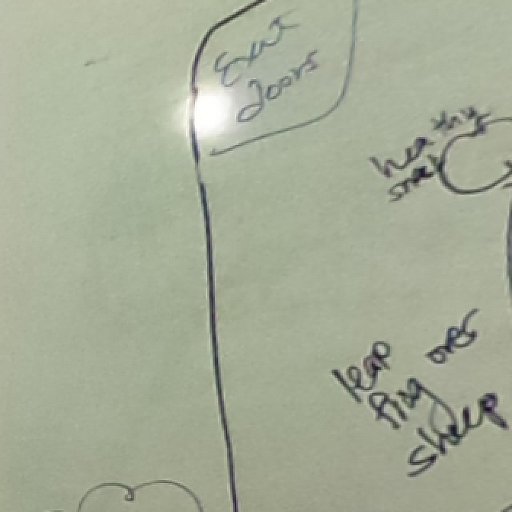 Exit
doors
healthy
snack
leap
over
sheep